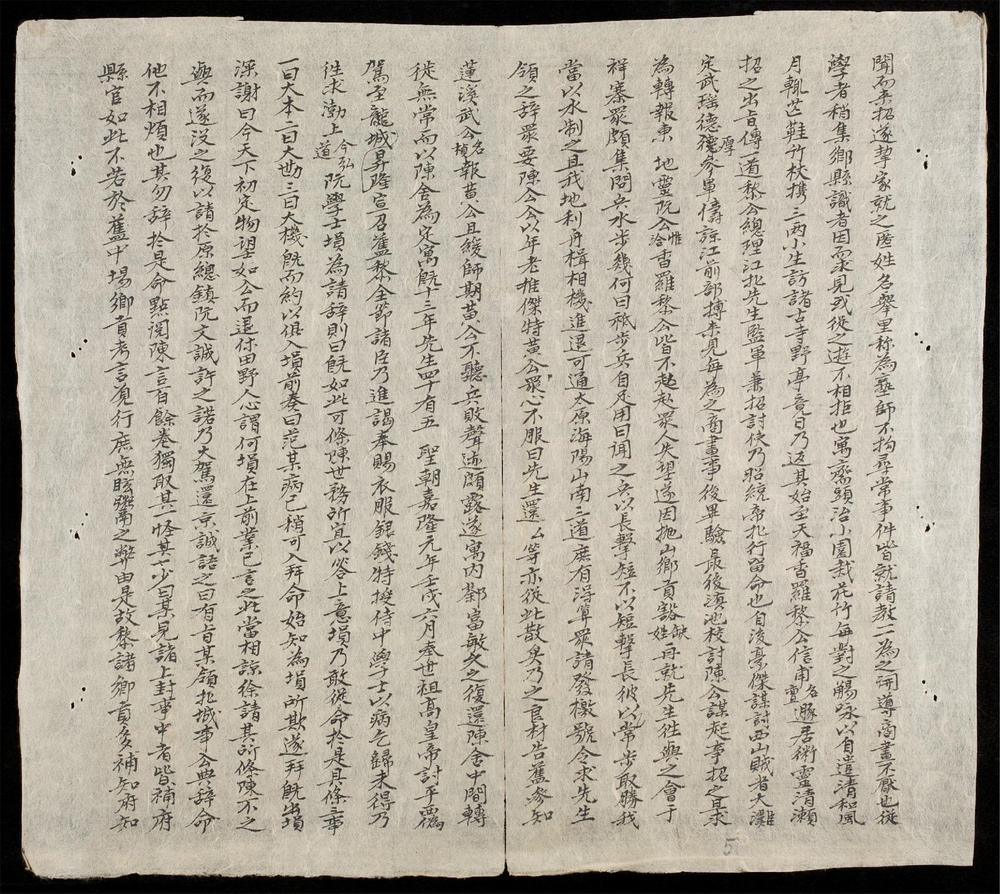 聞而來招遂挈家就之匿姓名舉里称為塾師不拘尋常事件皆就請教一一為之開導商畫不厭也從
學者稍集鄉縣識者因而求見或從之遊不相拒也寓齋頭治小園栽花竹每對之觴咏以自遣清和風
月輒芒鞋竹杖携三兩小生訪諸古寺野亭竟日乃返其始至天福香羅黎公信甫名亶豚居術靈清瀨
招之出旨傳一道黎公總理江北先生監軍兼招討使乃昭統帝北行留命也自後豪傑謀討西山賊者大灘
定武瑶德德厚參軍儔諒江前部搏來見每為之商畫事後畢驗最後滇池校討陳公謀起事招之且求
為轉報東 地靈阮公惟洽香羅黎公皆不起赴眾人失望遂因拋山鄉貢豁缺姓再就先生徃與之會于
祥寨眾頗集問兵水步幾何曰祇步兵自足用曰聞之兵以長擊短不以短擊長彼以常步取勝我
當以水制之且我地利舟楫相機進退可通太原海陽山南三道庶有得算眾請發檄號令求先生
領之辞眾要陳公公以年老推傑特黃公眾心不服曰先生還厶等亦從此散矣乃之良材告舊參知
蓮溪武公名楨報黃公且緩師期黃公不聽兵敗聲迹頗露遂寓內鄰富敏久之復還陳舍中間轉
徙無常而以陳舍為定寓既十三年先生四十有五 聖朝嘉隆元年壬戌六月奉世祖高皇帝討平偽
駕至龍城昇隆宣召舊黎全節諸臣乃進謁奉賜衣服銀錢特授侍中學士以病乞歸未得乃
徃求渤上今弘道阮學士塤為請辞則曰既如此可條陳世務所宜以答上意塤乃敢從命於是具條三事
一曰大本二曰大勘三曰大機既而約以俱入塤前奏曰范某病已稍可入拜命始知為塤所欺遂拜既出塤
深謝曰今天下初定物望如公而退休田野人心謂何塤在上前業已言之此當相諒徐請其所條陳不之
與而遂沒之後以請於原總鎮阮文誠許之諾乃大駕還京誠語之曰有旨某領北城事公典辞命
他不相煩也其勿辞於是命點閱陳言百餘卷獨取其一怪其少曰某見諸上封事中者皆補府
縣官如此不若於舊中場鄉貢考言覓行庶無眩鬻之弊由是故黎諸鄉貢多補知府知
5